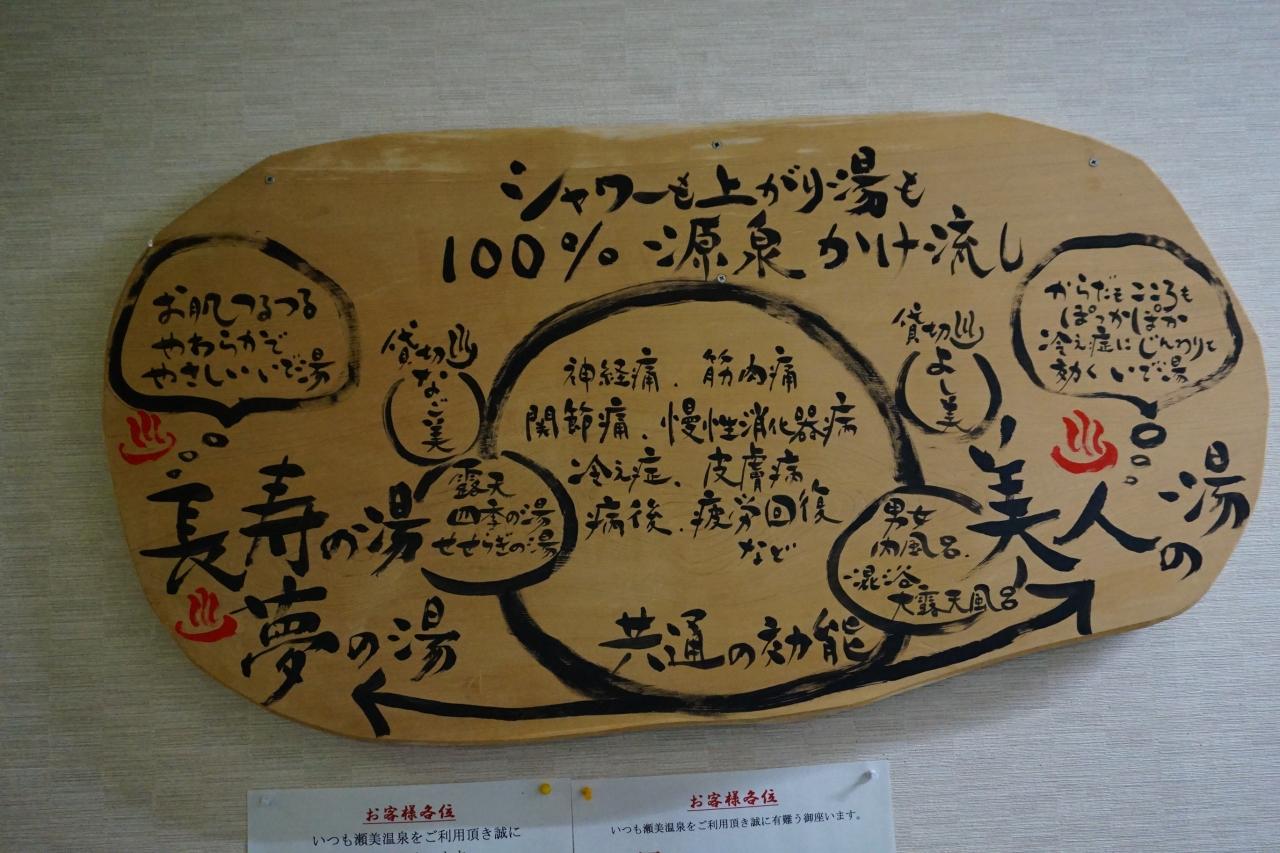 シャワーも上がり湯も
100% 源泉かけ流し
お肌つるつる
やわらかで
やさしいいで湯
長寿の湯
夢の湯
貸切♨
なご美
露天
四季の湯
せせらぎの湯
神経痛、筋肉痛
関節痛、慢性消化器病
冷え症、皮膚病
病後、疲労回復
など
共通の効能
貸切♨
よし美
男女
内風呂、
混浴
大露天風呂
からだもこころも
ぽっかぽか
冷え症にじんわりと
効くいで湯
美人の湯
お客様各位
いつも瀬美温泉をご利用頂き誠に
お客様各位
いつも瀬美温泉をご利用頂き誠に有難う御座います。